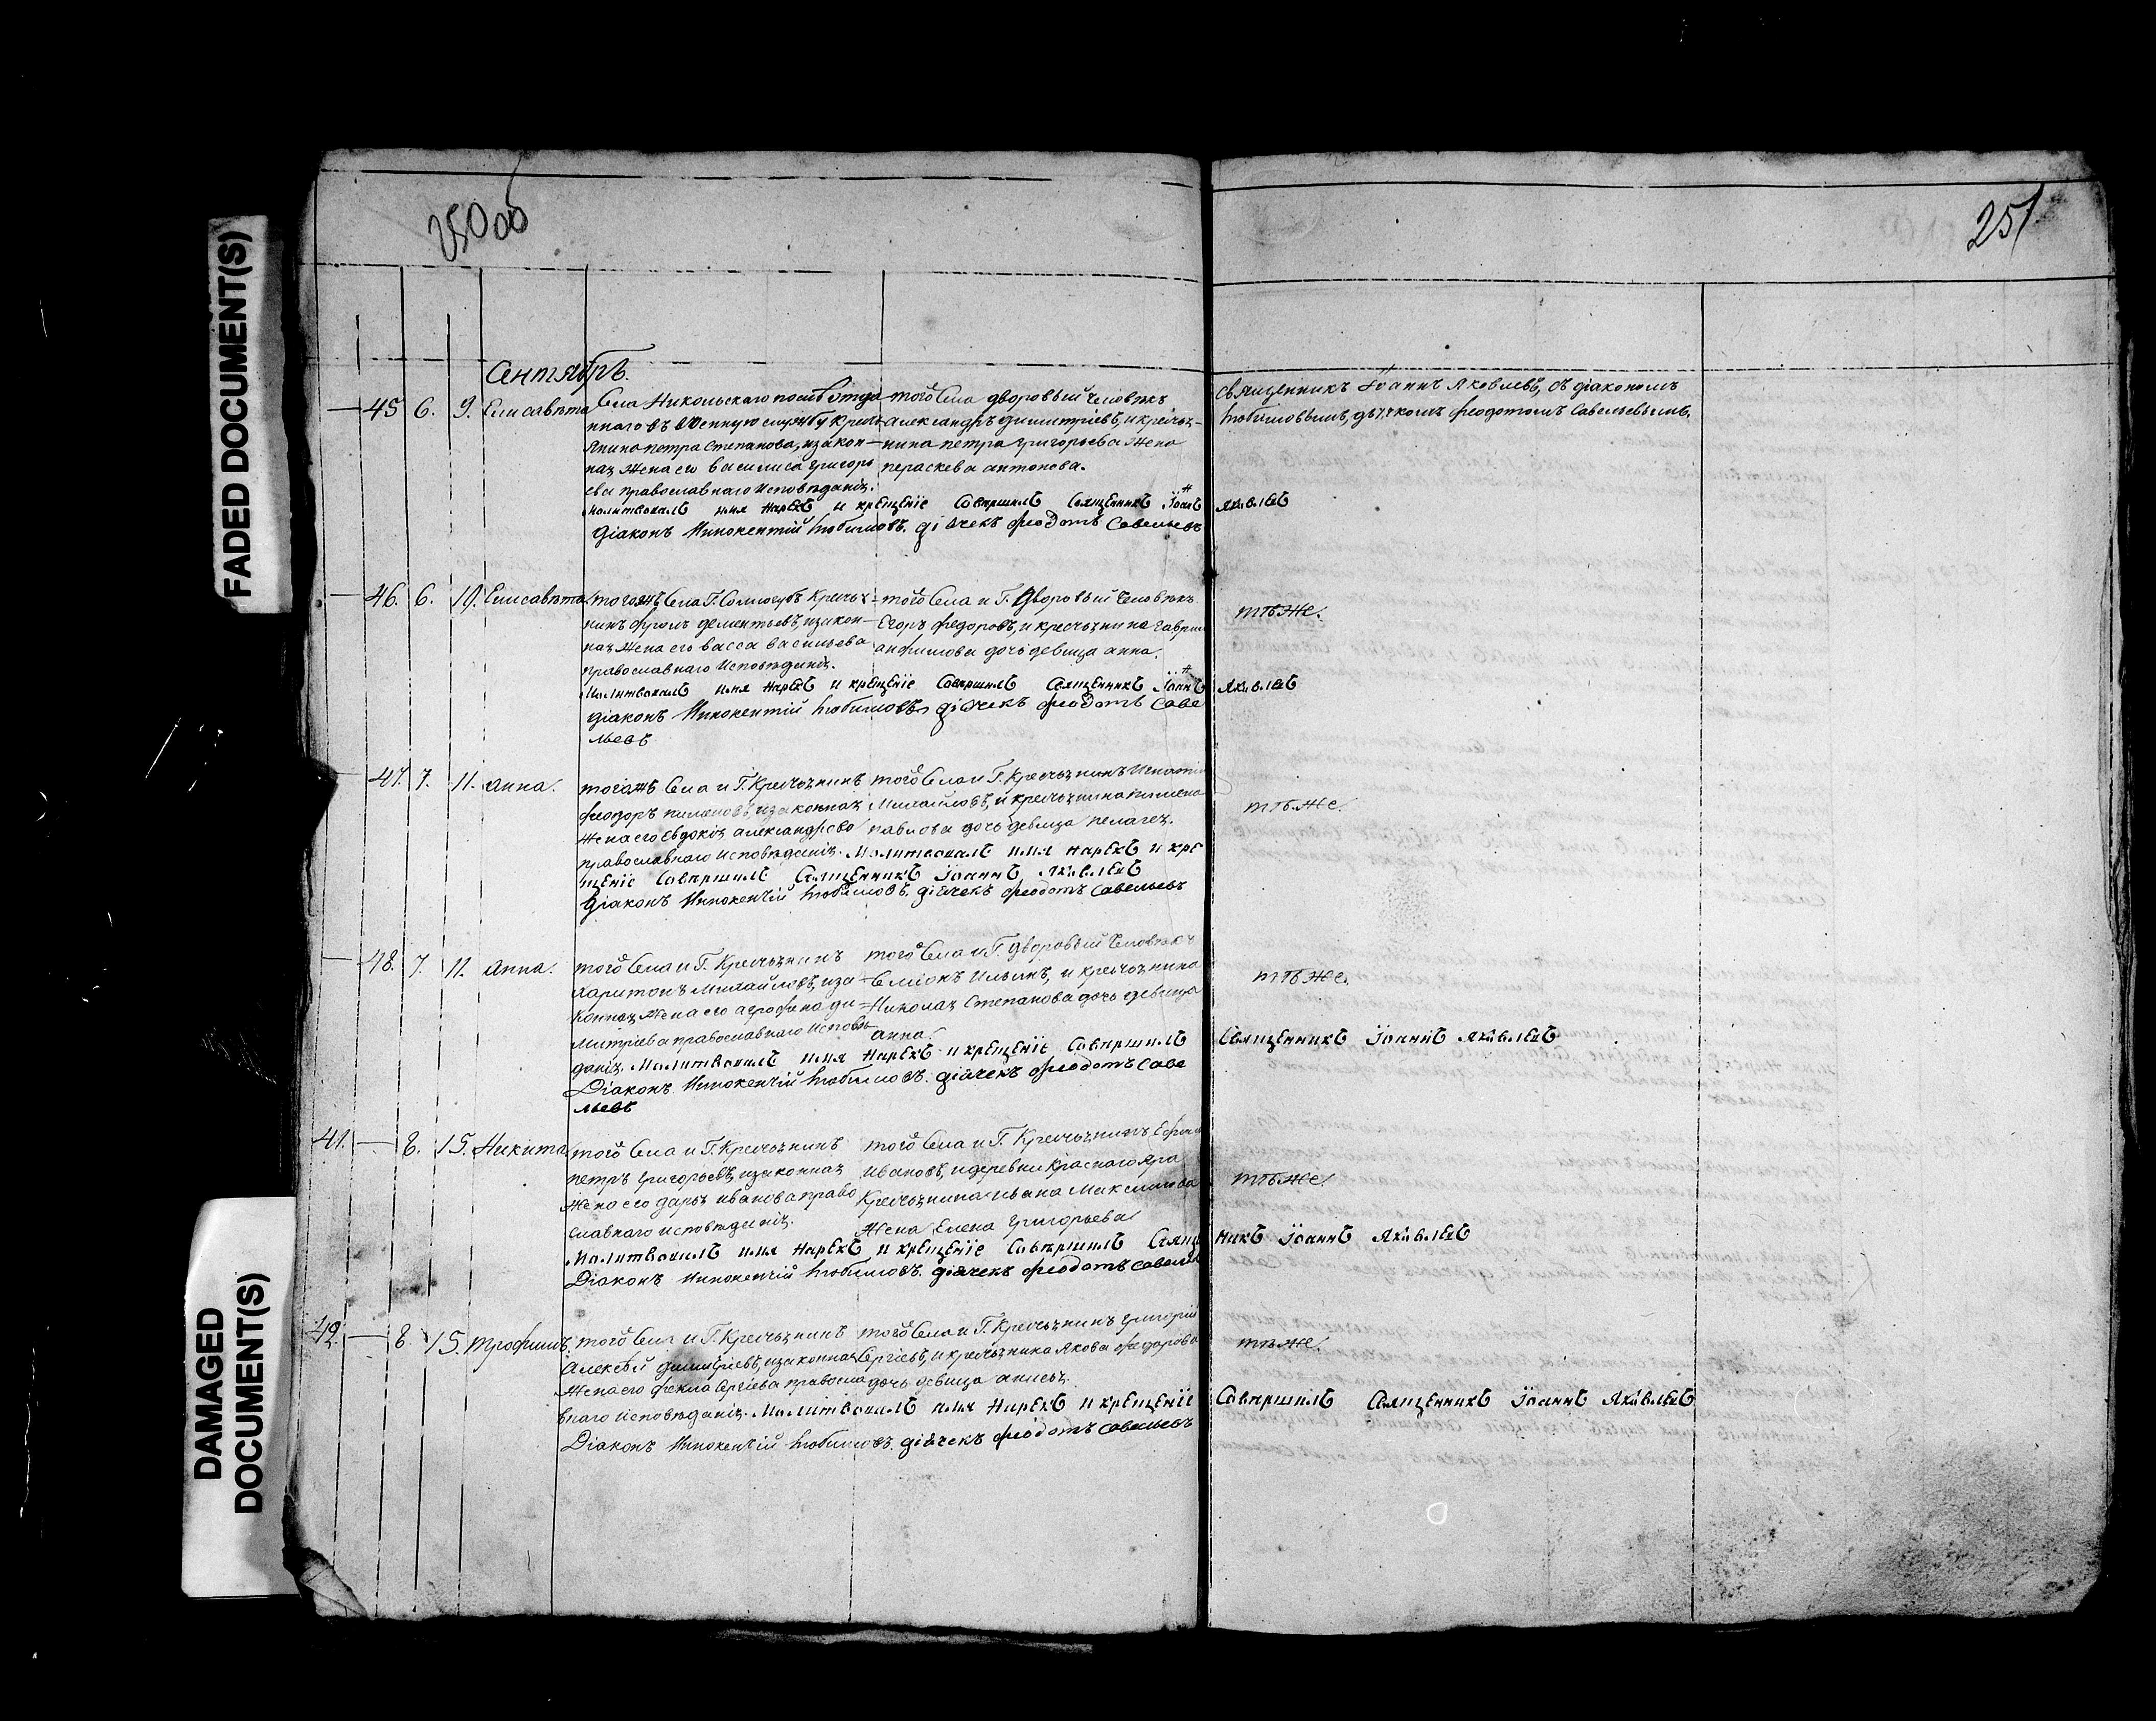 FADED DOCUMENT(S)
DAMAGED DOCUMENT(S)
250 об
251
Сентябрь.
45 6. 9. Елисавета
Села Никольскаго после отда
ннаго въ военную службу кресть
янина петра Степанова, закон
ная жена его василиса григорь
ева православнаго исповѣданія.
того Села дворовый человѣкъ
александръ димитріевъ, и крестья-
нина петра григорьева жена
параскева антонова.
Священникъ Іоаннъ Яковлевъ, съ діакономъ
Любимовымъ, дьячкомъ феодотомъ Савельевымъ.
Молитвовалъ имя нарекъ и крещеніе совершилъ Священникъ Іоаннъ Яковлевъ
діаконъ Иннокентій Любимовъ. діячекъ феодотъ Савельевъ
46. 6. 19. Елисавета
тогожъ Села Г. крестья-
нинъ дементьевъ, и закон-
ная жена его васса васильева
православнаго исповѣданія.
того Села и Г. дворовый человѣкъ
Егоръ федоровъ, и крестьянина гаврила
анфимова дочь девица анна.
тѣже.
Молитвовалъ имя нарекъ и крещеніе совершилъ Священникъ Іоаннъ Яковлевъ
діаконъ Иннокентій Любимовъ, діячекъ феодотъ Саве
льевъ
47. 7. 11. анна.
тогожъ Села и Г. Крестьянинъ
феодоръ пименовъ, и законная
жена его Евдокія александрова
православнаго исповѣданія.
того Села и Г. Крестьянинъ Игнатій
Михайловъ, и крестьянина
павлова дочь девица пелагея.
тѣже.
Молитвовалъ имя нарекъ и кре
щеніе совершилъ Священникъ Іоаннъ Яковлевъ
діаконъ Иннокентій Любимовъ. діячекъ феодотъ Савельевъ
48. 7. 11. Анна.
того Села и Г. Крестьянинъ
Харитонъ Михайловъ, и за
конная жена его агрофина ди
митріева православнаго исповѣ
данія.
того Села и Г. дворовый человѣкъ
Симіонъ Ильинъ, и крестьянина
Николая Степанова дочь девица
анна.
тѣже.
Молитвовалъ имя нарекъ и крещеніе совершилъ Священникъ Іоаннъ Яковлевъ
Діаконъ Иннокентій Любимовъ. діячекъ феодотъ Саве
льевъ
41. 8. 15. Никита
того Села и Г. Крестьянинъ
петръ григорьевъ, и законная
жена его дарья иванова право
славнаго исповѣданія.
того Села и Г. Крестьянинъ
ивановъ, и деревни Краснаго яра
Крестьянина ивана Максимова
жена Елена григорьева
тѣже.
Молитвовалъ имя нарекъ и крещеніе совершилъ Священникъ Іоаннъ Яковлевъ
Діаконъ Иннокентій Любимовъ. діячекъ феодотъ Савельевъ
42. 8. 15. Трофимъ.
того Села и Г. Крестьянинъ
Алексѣй димитріевъ, и законная
жена его фекла Сергіева правосла
внаго исповѣданія.
того Села и Г. Крестьянинъ григорій
Сергіевъ, и крестьянина якова федорова
дочь девица анисья.
тѣже.
Молитвовалъ имя нарекъ и крещеніе совершилъ Священникъ Іоаннъ Яковлевъ
Діаконъ Иннокентій Любимовъ. діячекъ феодотъ Савельевъ